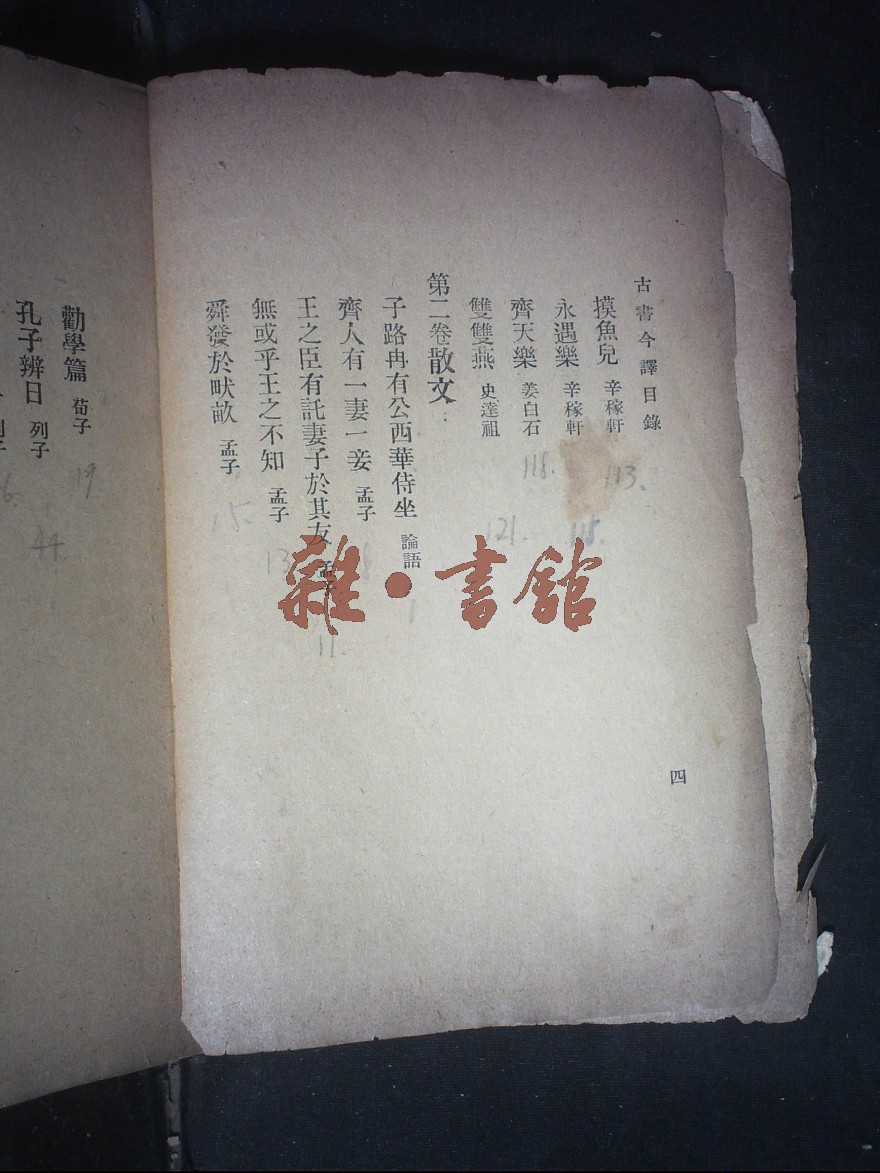 古書今譯目錄
摸魚兒 辛稼軒
113.
永遇樂 辛稼軒
118.
齊天樂 姜白石
118.
雙雙燕 史達祖
121.
第二卷散文：
子路冉有公西華侍坐 論語
1
齊人有一妻一妾 孟子
8
王之臣有託妻子於其友 孟子
11.
無或乎王之不知 孟子
13
舜發於畎畝 孟子
15.
四
勸學篇 荀子
19
孔子辨日 列子
44.
雜·書舘